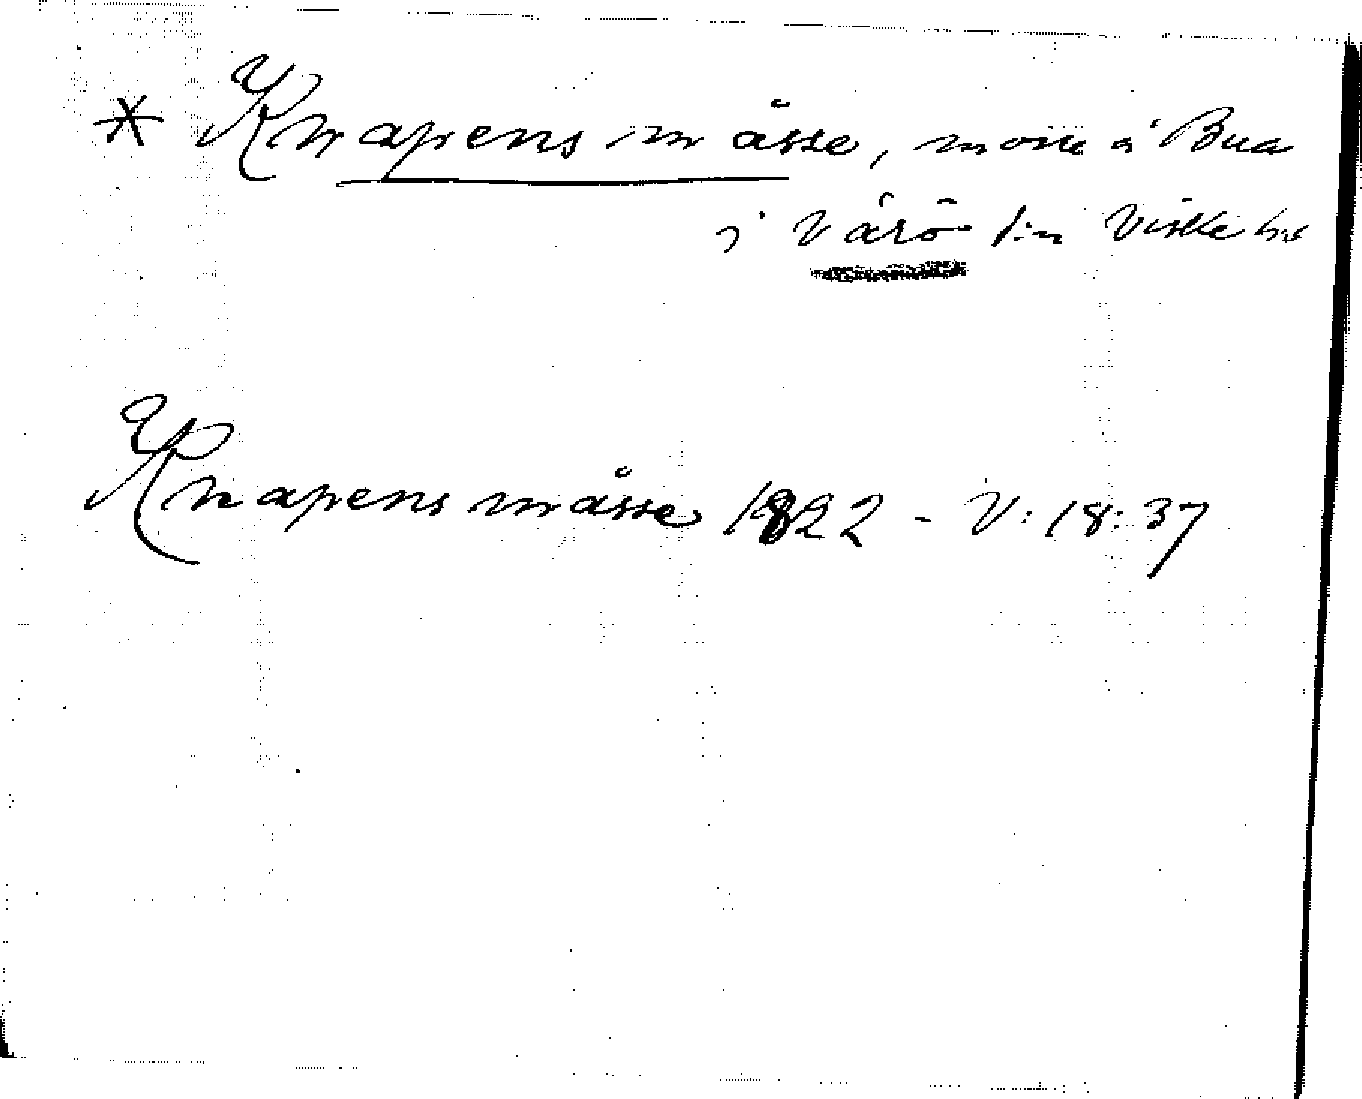 * Knapens måsse, mosse å Bua
i Värö s:n Viske hd
Knapens måsse 1822 - V: 18: 37